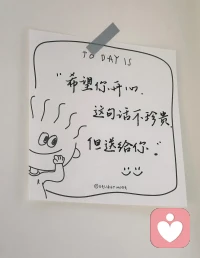 TO DAY IS
“希望你开心.
这句话不珍贵.
但送给你.”